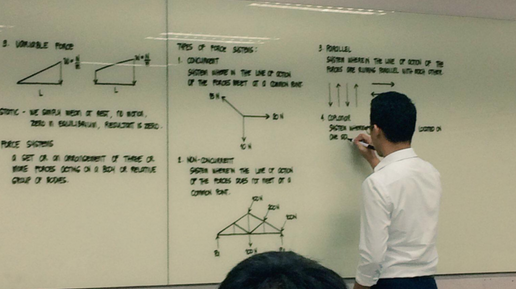 3. VARIABLE FORCE
L
L
STATIC - WE SIMPLY MEAN AT REST, NO MOTION,
ZERO IN EQUILIBRIUM, RESULTANT IS ZERO.
FORCE SYSTEMS
A SET OR AN ARRANGEMENT OF THREE OR
MORE FORCES ACTING ON A BODY OR RELATIVE
GROUP OF BODIES.
TYPES OF FORCE SYSTEMS:
1. CONCURRENT
SYSTEM WHERE IN THE LINE OF ACTION
OF THE FORCES MEET AT A COMMON POINT
2. NON-CONCURRENT
SYSTEM WHERE IN THE LINE OF ACTION
OF THE FORCES DOES NOT MEET AT A
COMMON POINT.
3. PARALLEL
SYSTEM WHERE IN THE LINE OF ACTION OF THE
FORCES ARE RUNNING PARALLEL WITH EACH OTHER.
4. COPLANAR
SYSTEM LOCATED ON
ONE